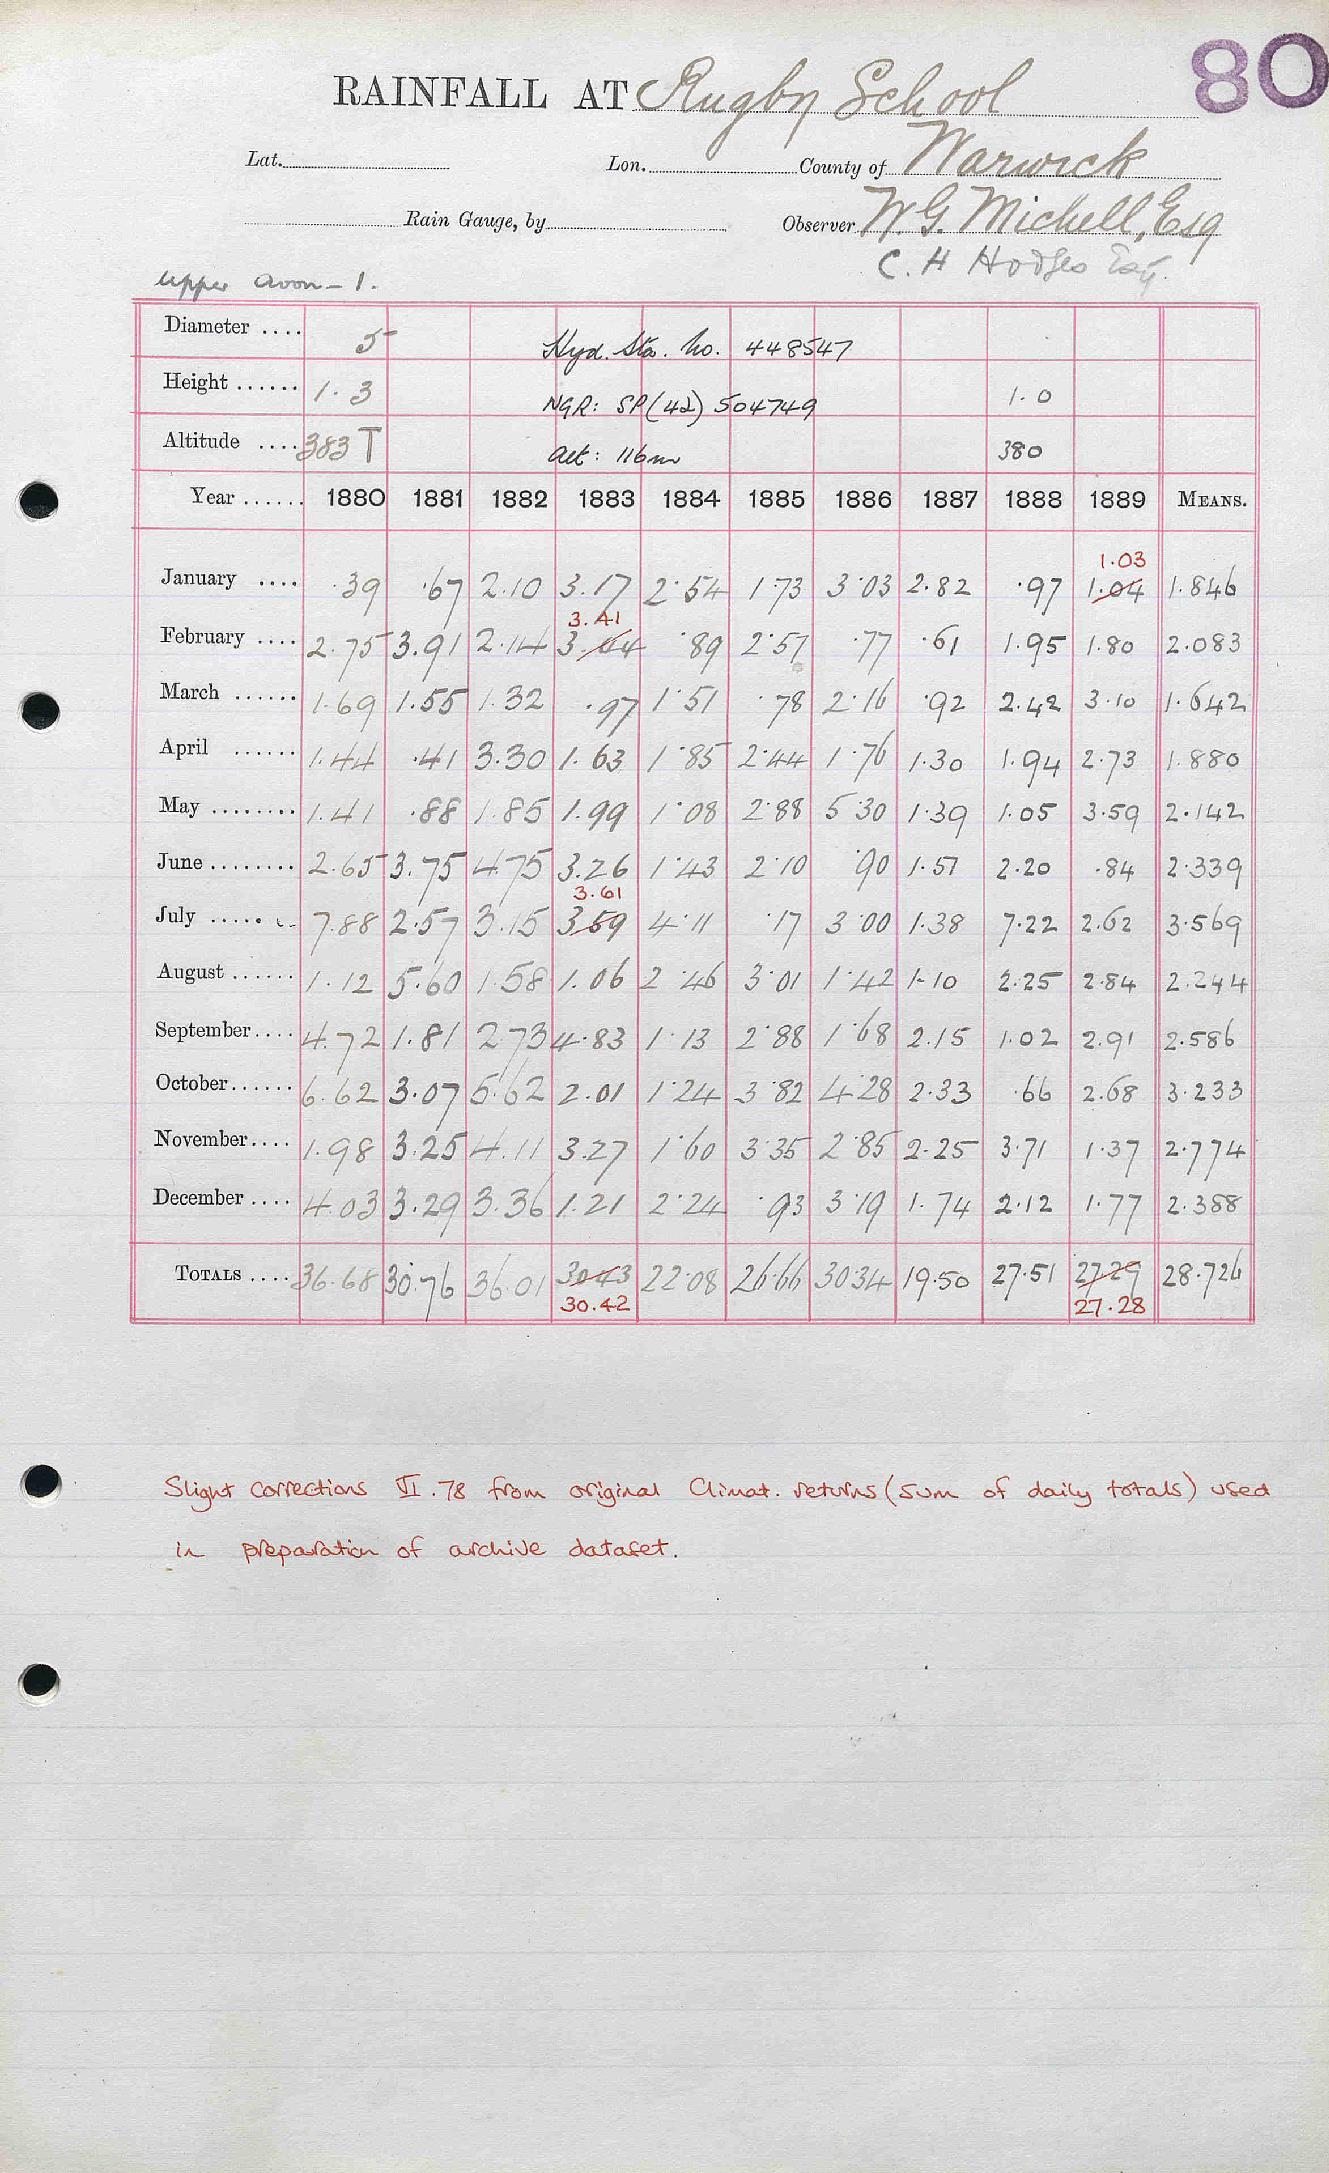 80
RAINFALL AT Rugby School
Lat. Lon. County of Warwick
Rain Gauge, by Observer W. G. Michell, Esq
C. H Hodges Esq.
Upper Avon - 1.
Diameter .... 5 Hyd. Sta. No. 448547
Height ...... 1.3 NGR: SP(42) 504749 1.0
Altitude .... 383 T Alt: 116m 380
Year ...... 1880 1881 1882 1883 1884 1885 1886 1887 1888 1889 MEANS.
1.03
January .... .39 .67 2.10 3.17 2.54 1.73 3.03 2.82 .97 1.04 1.846
3.41
February .... 2.75 3.91 2.14 3.44 .89 2.57 .77 .61 1.95 1.80 2.083
March ...... 1.69 1.55 1.32 .97 1.51 .78 2.16 .92 2.42 3.10 1.642
April ...... 1.44 .41 3.30 1.63 1.85 2.44 1.76 1.30 1.94 2.73 1.880
May ........ 1.41 .88 1.85 1.99 1.08 2.88 5.30 1.39 1.05 3.59 2.142
June ........ 2.65 3.75 4.75 3.26 1.43 2.10 .90 1.57 2.20 .84 2.339
3.61
July ...... 7.88 2.57 3.15 3.59 4.11 .17 3.00 1.38 7.22 2.62 3.569
August ...... 1.12 5.60 1.58 1.06 2.46 3.01 1.42 1.10 2.25 2.84 2.244
September.... 4.72 1.81 2.73 4.83 1.13 2.88 1.68 2.15 1.02 2.91 2.586
October...... 6.62 3.07 5.62 2.01 1.24 3.82 4.28 2.33 .66 2.68 3.233
November.... 1.98 3.25 4.11 3.27 1.60 3.35 2.85 2.25 3.71 1.37 2.774
December .... 4.03 3.29 3.36 1.21 2.24 .93 3.19 1.74 2.12 1.77 2.388
TOTALS .... 36.68 30.76 36.01 30.43 22.08 26.66 30.34 19.50 27.51 27.29 28.726
30.42 27.28
Slight corrections VI.78 from original Climat. returns (sum of daily totals) used
in preparation of archive dataset.